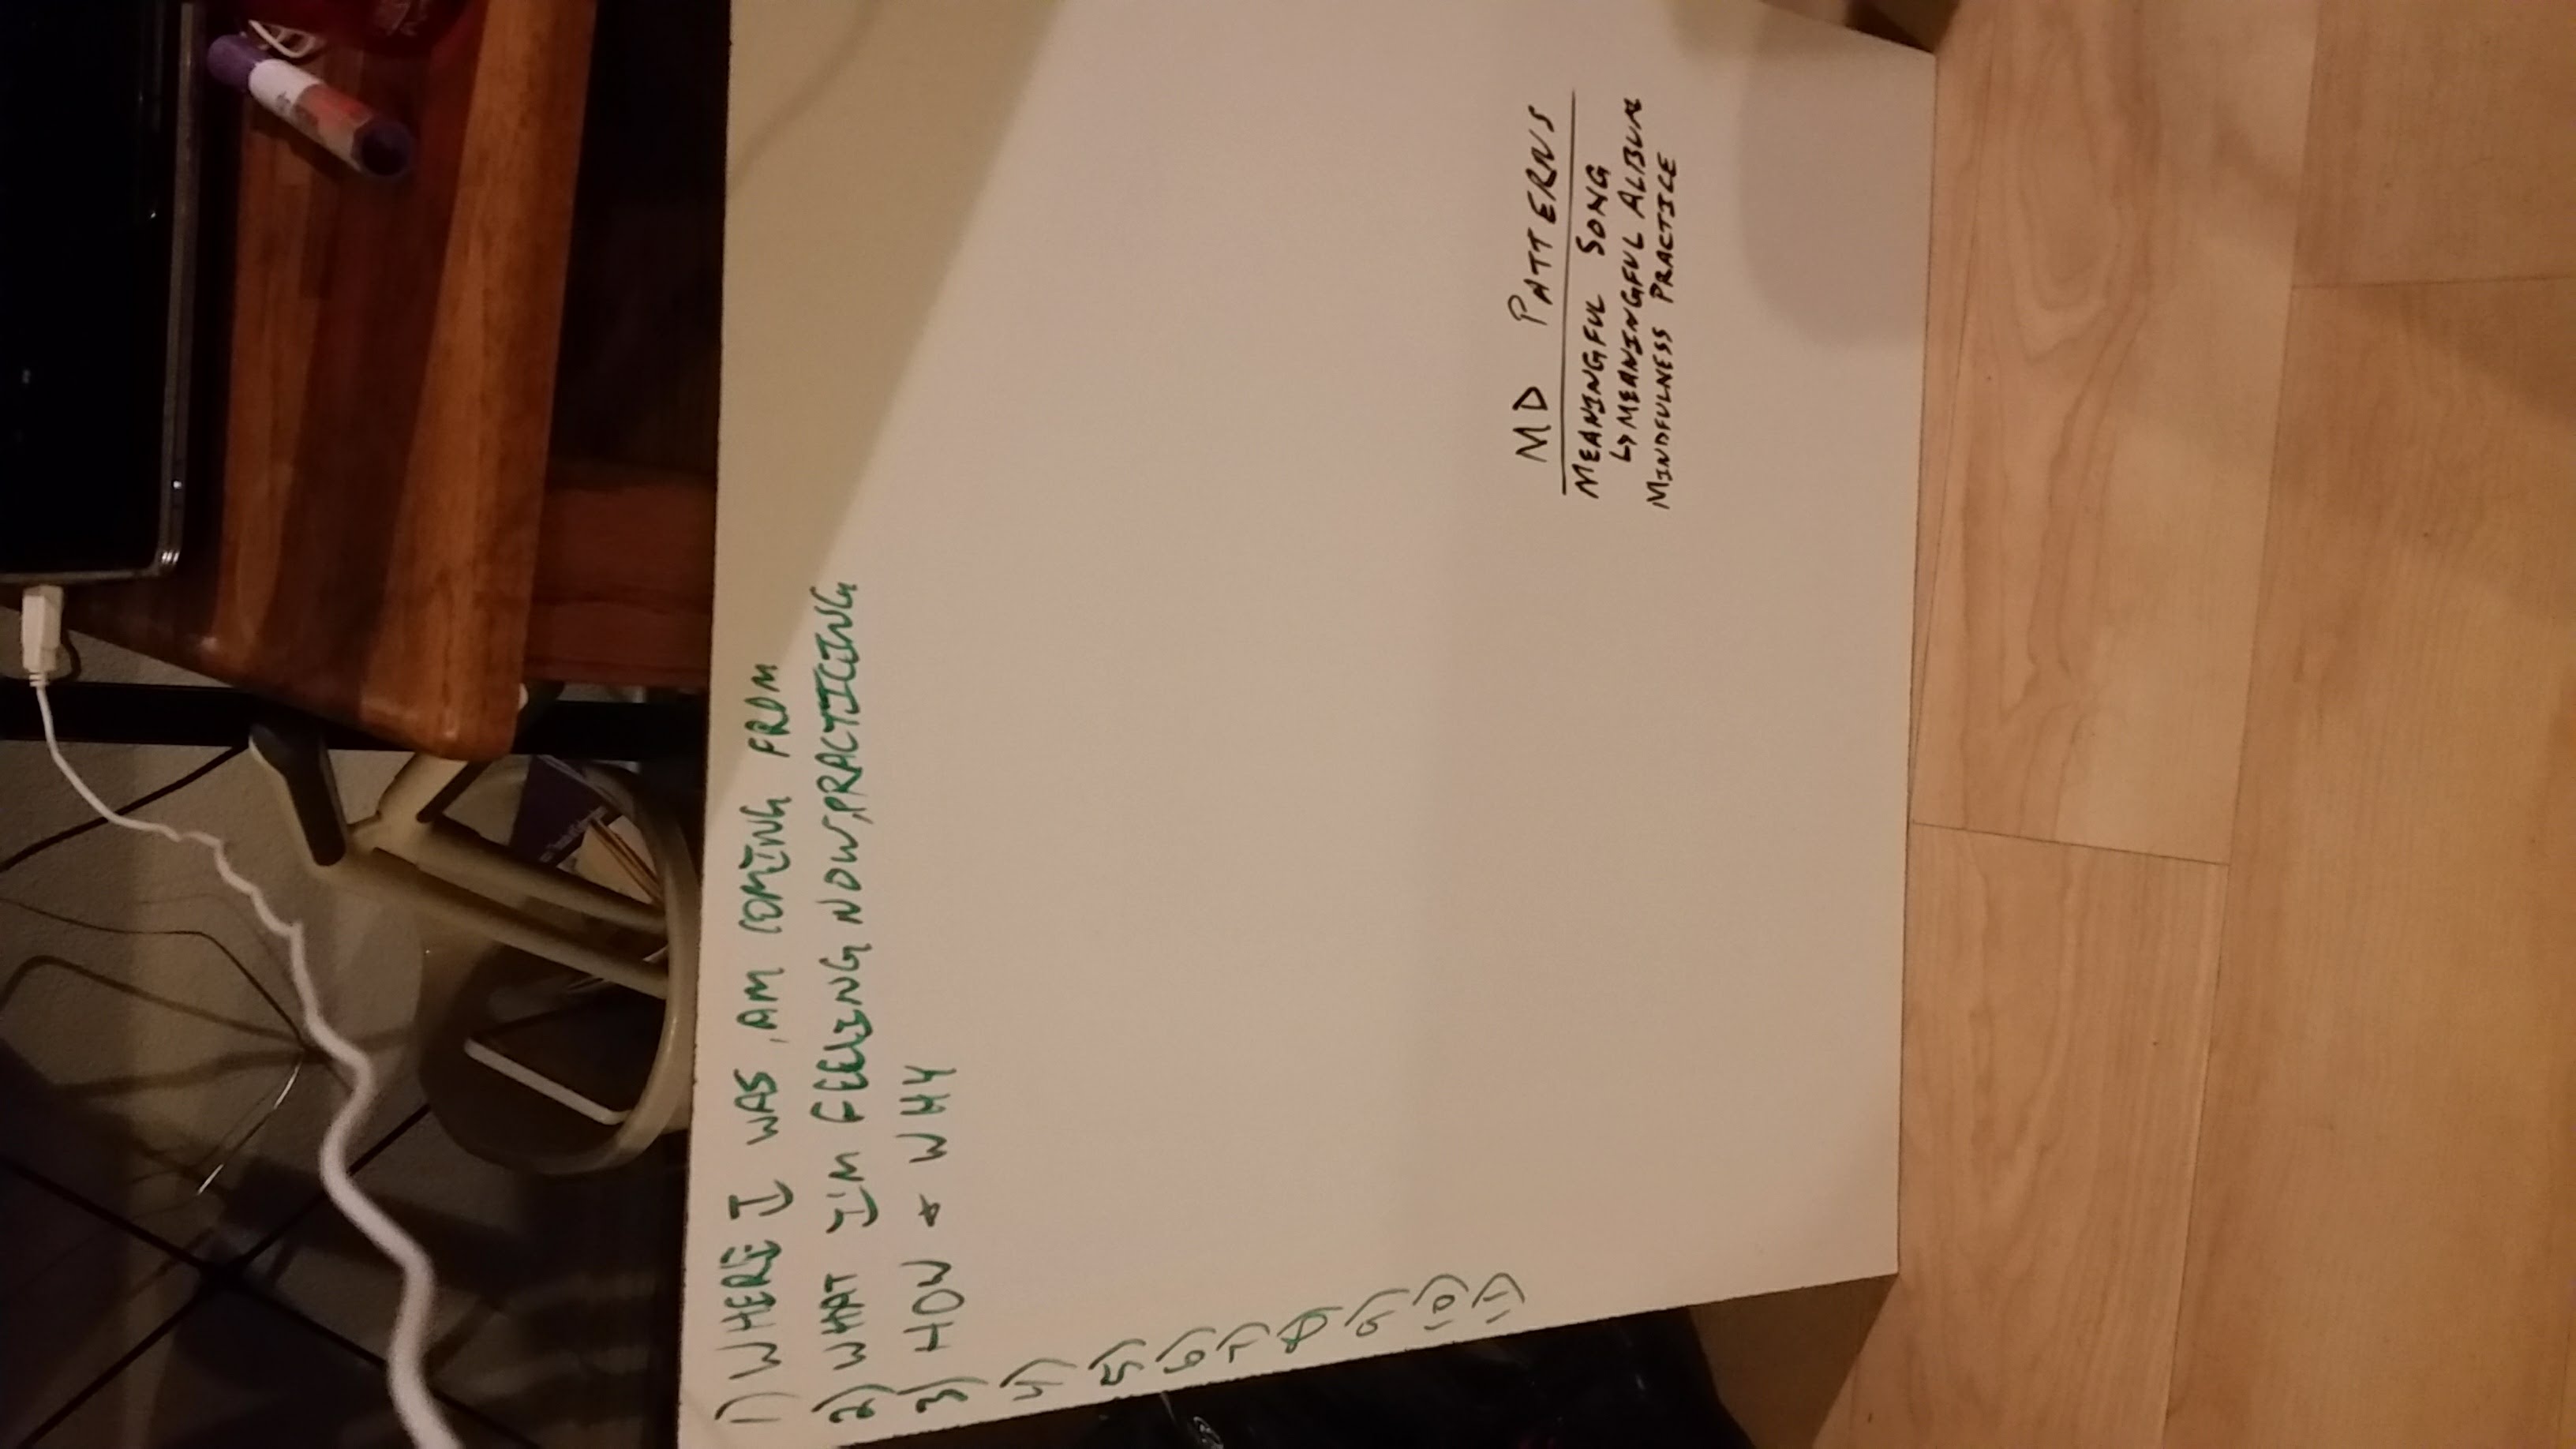 1) WHERE I WAS, AM COMING FROM
2) WHAT I'M FEELING NOW, PRACTICING
3) HOW & WHY
4)
5)
6)
7)
8)
9)
10)
11)
MD PATTERNS
MEANINGFUL SONG
↳ MEANINGFUL ALBUM
MINDFULNESS PRACTICE